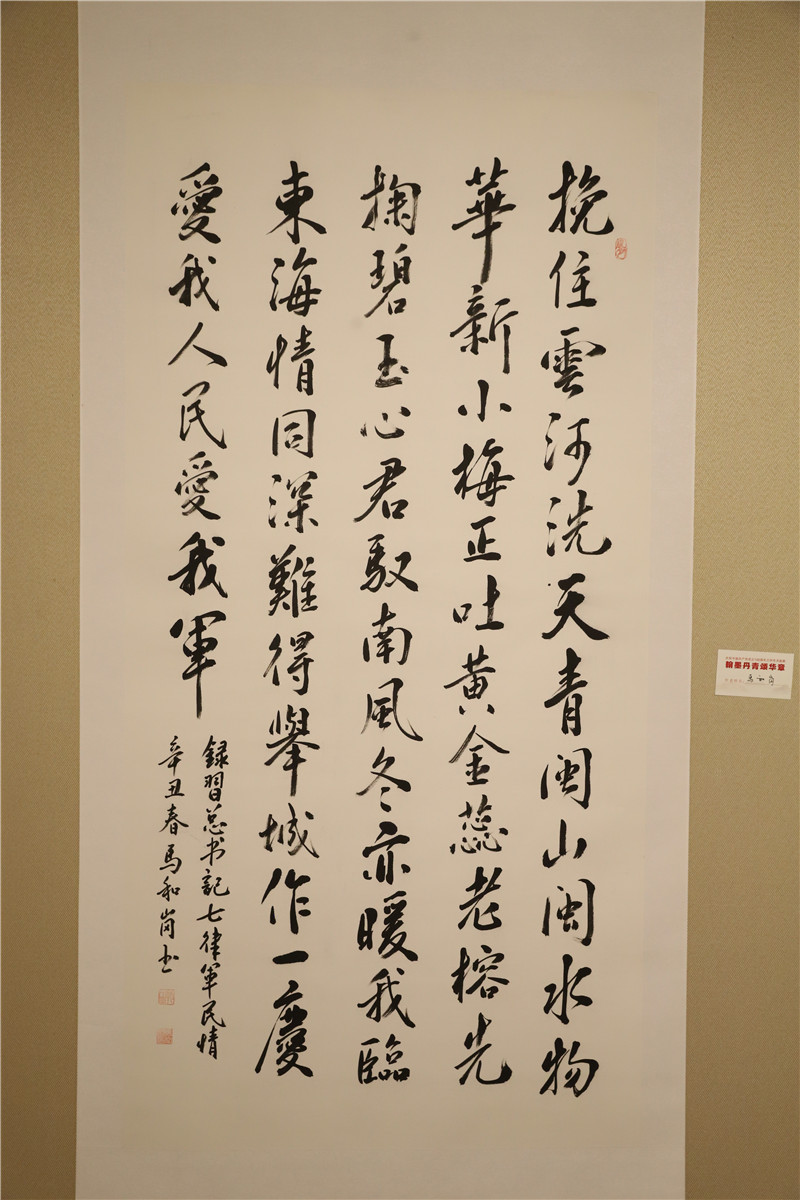 挽住雲河洗天青閩山閩水物
華新小梅正吐黃金蕊老榕先
掬碧玉心君馭南風冬亦暖我臨
東海情同深難得舉城作一慶
愛我人民愛我軍
録習总书記七律军民情
辛丑春馬和岗书
翰墨丹青颂华章
馬和岗